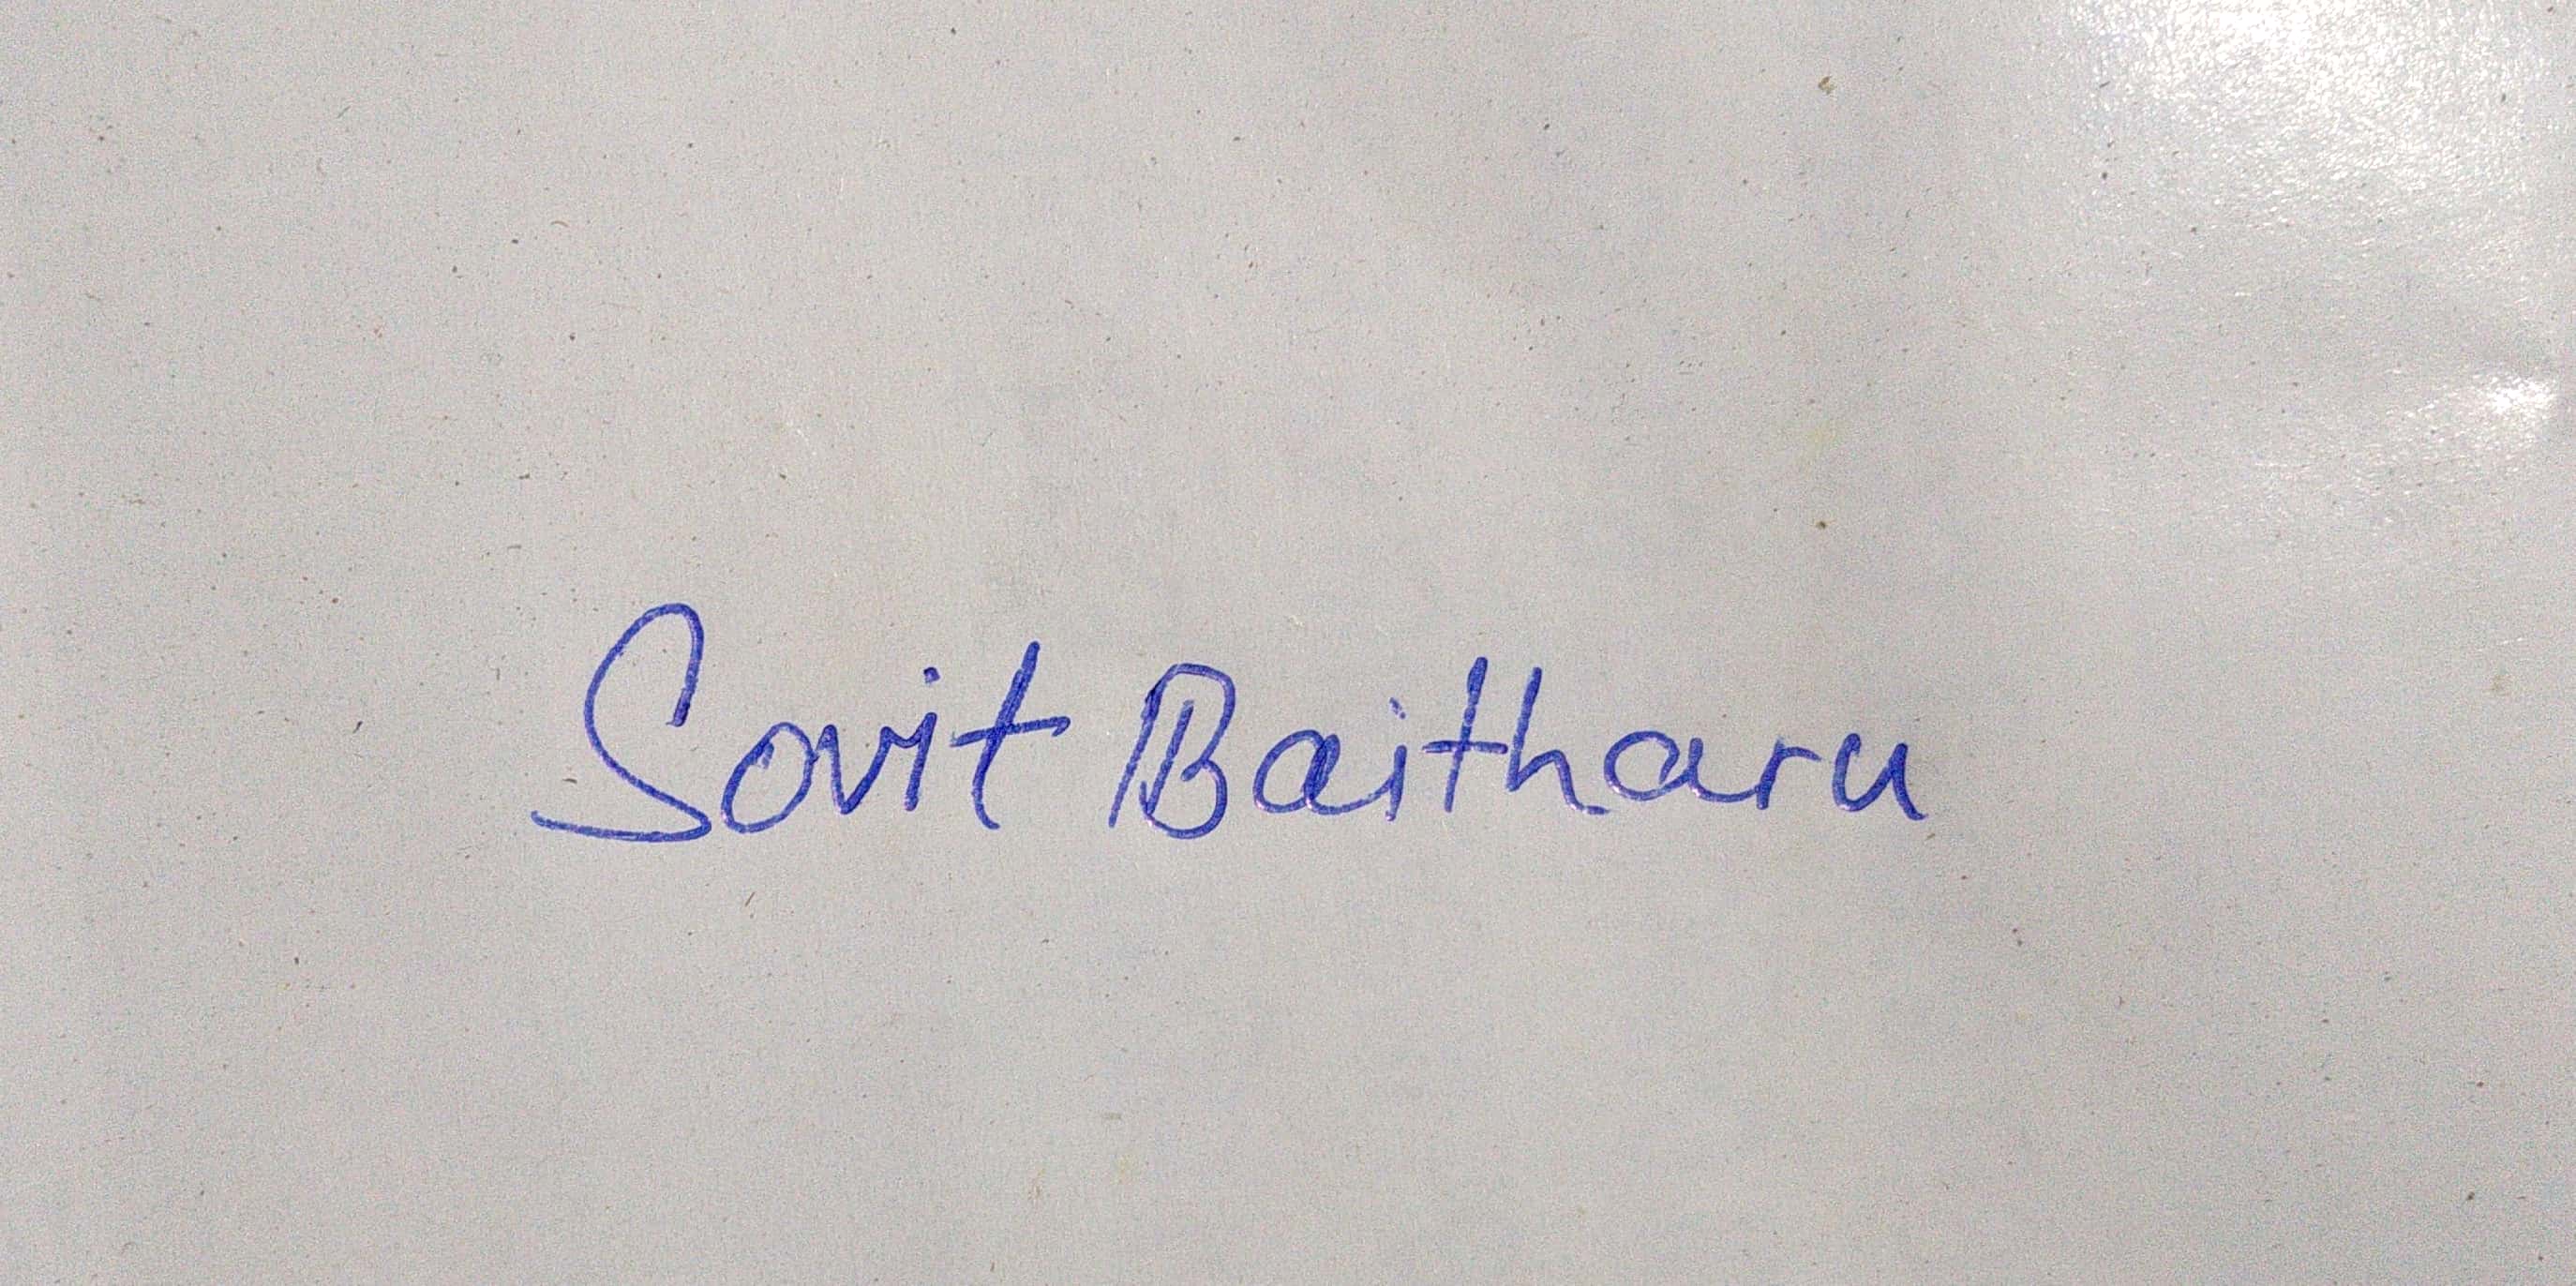 Sovit Baitharu